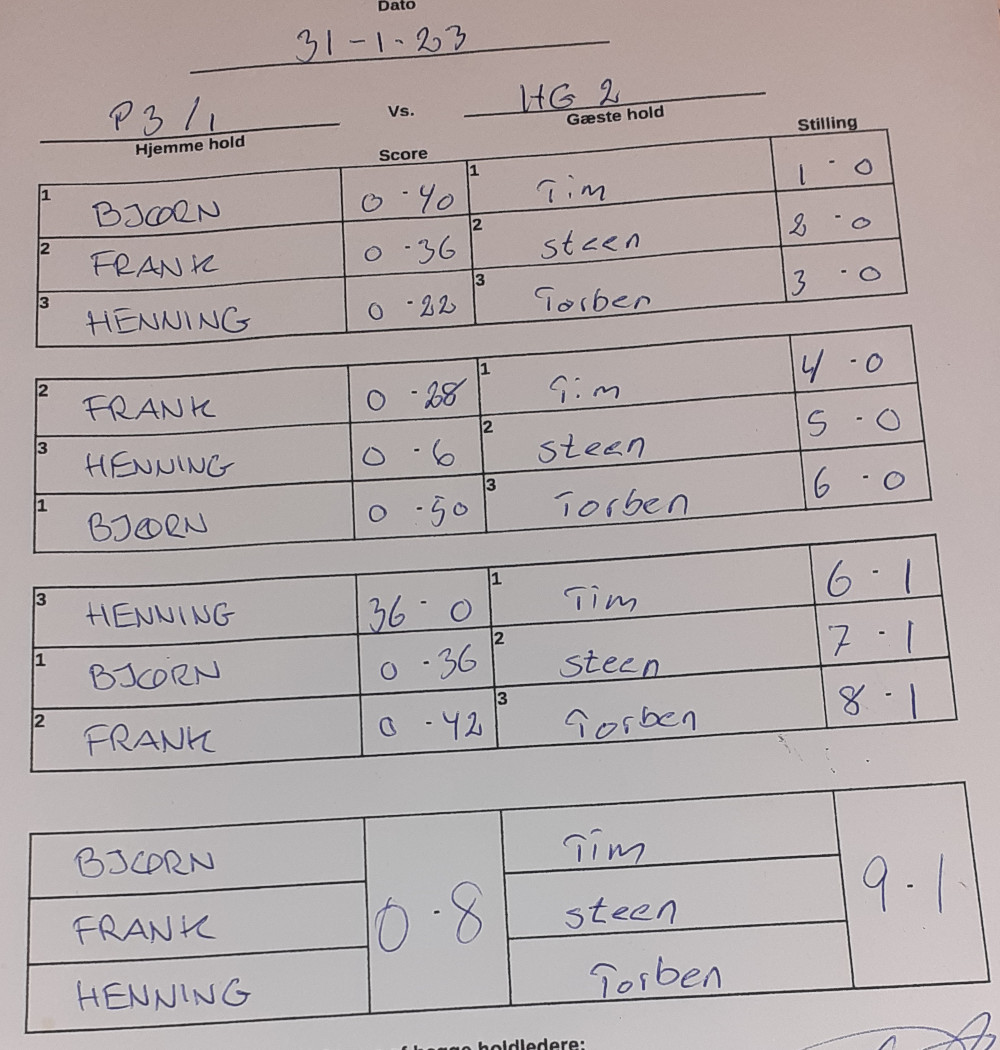 Dato
31-1-23
P3/1 Vs. HG 2
Hjemme hold Gæste hold
Score Stilling
1 BJØRN 0-40 1 Tim 1-0
2 FRANK 0-36 2 steen 2-0
3 HENNING 0-22 3 Torben 3-0
2 FRANK 0-28 1 Tim 4-0
3 HENNING 0-6 2 steen 5-0
1 BJØRN 0-50 3 Torben 6-0
3 HENNING 36-0 1 Tim 6-1
1 BJØRN 0-36 2 steen 7-1
2 FRANK 0-42 3 Torben 8-1
BJØRN Tim
FRANK 0-8 steen 9-1
HENNING Torben
begge holdledere: